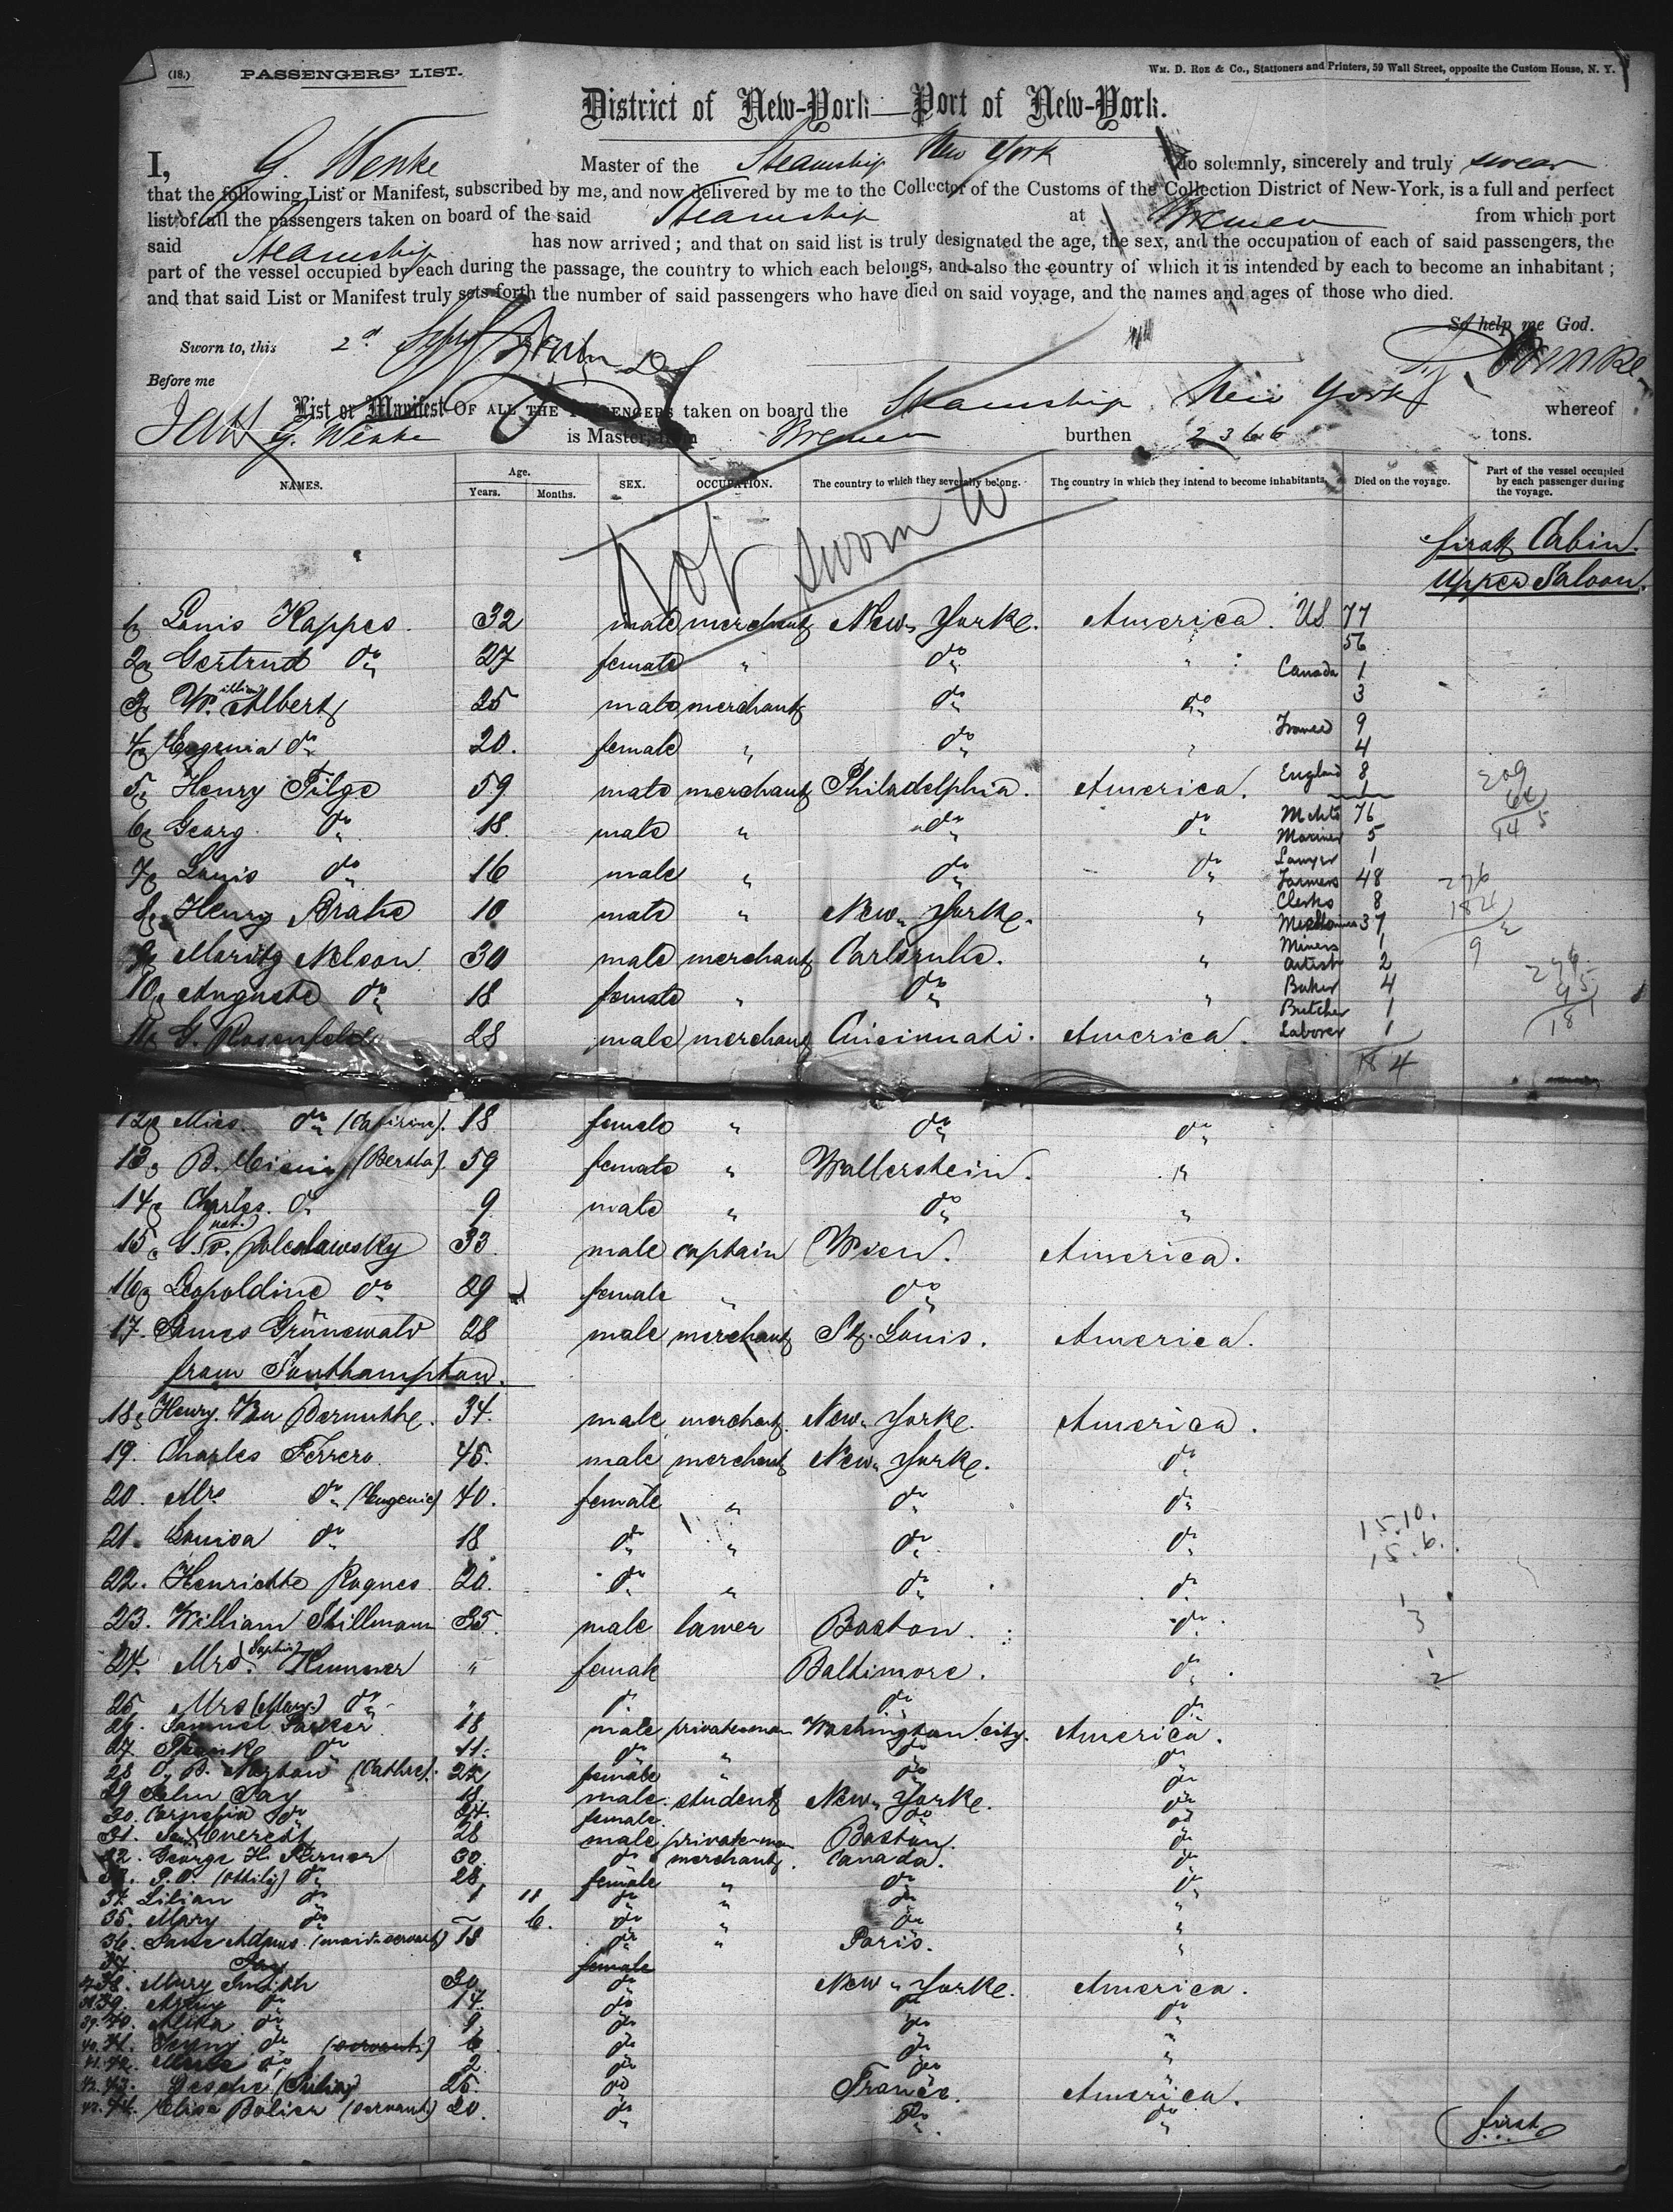 (18.) PASSENGERS' LIST.
WM. D. ROE & Co., Stationers and Printers, 59 Wall Street, opposite the Custom House, N. Y.
District of New-York—Port of New-York.
I, G. Wenke Master of the Steamship New York do solemnly, sincerely and truly swear
that the following List or Manifest, subscribed by me, and now delivered by me to the Collector of the Customs of the Collection District of New-York, is a full and perfect
list of all the passengers taken on board of the said Steamship at Bremen from which port
said Steamship has now arrived; and that on said list is truly designated the age, the sex, and the occupation of each of said passengers, the
part of the vessel occupied by each during the passage, the country to which each belongs, and also the country of which it is intended by each to become an inhabitant;
and that said List or Manifest truly sets forth the number of said passengers who have died on said voyage, and the names and ages of those who died.
So help me God.
Sworn to, this 2d Sept
G. Wenke
Before me
List or Manifest OF ALL THE PASSENGERS taken on board the Steamship New York whereof
G. Wenke is Master, from Bremen burthen 2366 tons.
NAMES. Age. Years. Months. SEX. OCCUPATION. The country to which they severally belong. The country in which they intend to become inhabitants. Died on the voyage. Part of the vessel occupied by each passenger during the voyage.
Not sworn to
first Cabin.
Upper Saloon.
1. Louis Kappes. 32 male merchant New-York. America. US 77
56
2. Gertrud do 27 female " do " Canada 1
3
3. William Albert 25 male merchant do do
France 9
4. Eugenia do 20. female " do " 4
5. Henry Tilge 59 male merchant Philadelphia. America. England 8
1
209
64
145
6. Georg do 18. male " do do Mchts 76
Mariner 5
7. Louis do 16 male " do do Lawyer 1
Farmers 48
8. Henry 10 male " New-York. " Clerks 8
Mechanics 37
276
184
9
9. Moritz Nelson. 30 male merchant Carlsruhe. " Miners 1
Artist 2
10. Auguste do 18 female " do " Baker 4
Butcher 1
276
95
181
11. G. Rosenfeld 28 male merchant Cincinnati. America. Laborer 1
184
12. Miss do 18 female " do do
13. B. (Bertha) 59 female " Wallerstein. "
14. Charles. do 9 male " do "
15. G. v. 33 male captain Wien. America.
16. Leopoldine do 29 female " do
17. James Grünewald 28 male merchant St. Louis. America.
from Southampton.
18. Henry Von Bernuthe. 34. male merchant. New-York. America.
19. Charles Ferrero. 45. male merchant New-York. do
20. Mrs do (Eugenie) 40. female " do do
15.10.
21. Louisa do 18 do " do do
15.6.
22. Henriette Ragnes 20. do " do do
23. William Stillmann 35. male lawer Boston. do
1
3
24. Mrs. (Sophia) Kummer " female Baltimore. do
1
2
25. Mrs (Mary) do " do do do
26. Samuel Parker 18 male privateman Washington city. America.
27. Franke do 11. do " do do
28 (Cathre). 22 female " do do
29 John Jay 18. male student New-York. do
30. Cornelia do 24. female. do do
31. Everett 28 male privateman Boston. do
32. George H. 30. do merchant. Canada. do
33. (Ottily) do 28 female " do do
34. Lilian do 1 11 do " do "
35. Mary do 6. do " do "
36. Jane Adams (maid servant) 18 do " Paris. "
37. Jay female
37 38. Mary Smith 30 do New-York. America.
38 39. do 14. do do do
39. 40. do 9 do do "
40. 41. Jenny do (servant) 6 do do "
41. 42. do 2 do do "
42. 43. 25. do France. America.
43. 44. Elisa (servant) 20. do do do
first